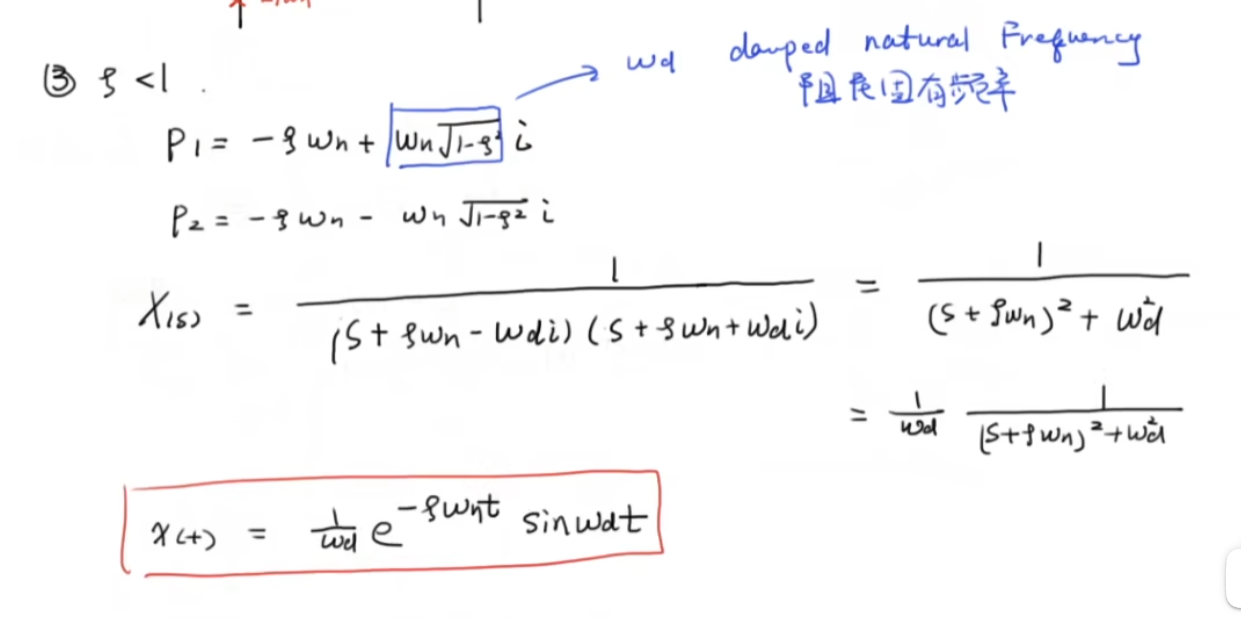 ωd damped natural Frequency
阻尼固有频率
③ ξ <1 .
P1 = -ξωn + ωn√(1-ξ²) i
P2 = -ξωn - ωn√(1-ξ²) i
X(s) = 1/((S+ξωn-ωdi)(S+ξωn+ωdi)) = 1/((S+ξωn)²+ωd²)
= 1/ωd 1/((S+ξωn)²+ωd²)
x(t) = 1/ωd e^(-ξωnt) sinωdt